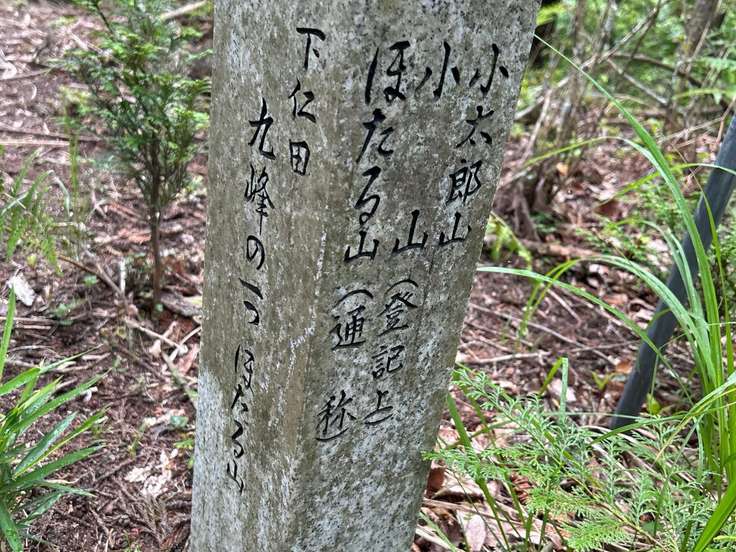 小太郎山
小山（登記上）
ほたる山（通称）
下仁田
九峰の一つ ほたる山